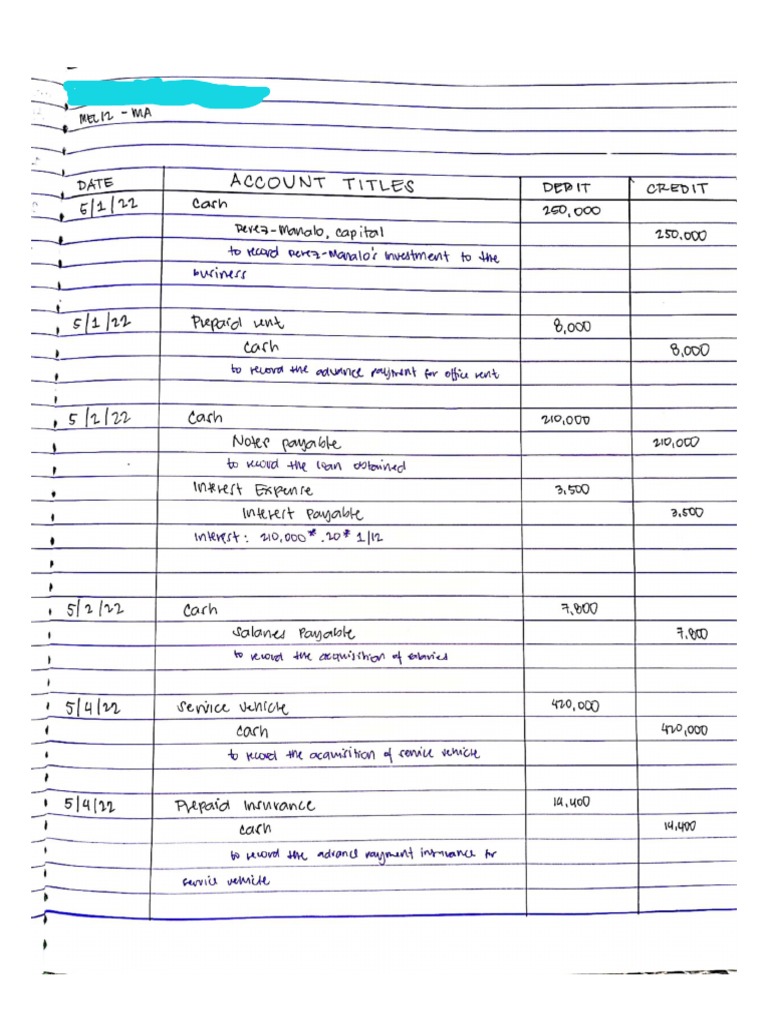 MEC12 - MA
DATE ACCOUNT TITLES DEBIT CREDIT
5/1/22 Cash 250,000
Perez-Manalo, Capital 250.000
to record Perez-Manalo's investment to the
business
5/1/22 Prepaid rent 8,000
Cash 8,000
to record the advance payment for office rent
5/2/22 Cash 210,000
Notes payable 210,000
to record the loan obtained
Interest Expense 3,500
Interest Payable 3,500
Interest: 210,000 * .20 * 1/12
5/2/22 Cash 7,800
Salaries Payable 7,800
to record the acquisition of salaries
5/4/22 Service vehicle 420,000
Cash 420,000
to record the acquisition of service vehicle
5/4/22 Prepaid Insurance 14,400
Cash 14,400
to record the advance payment insurance for
service vehicle